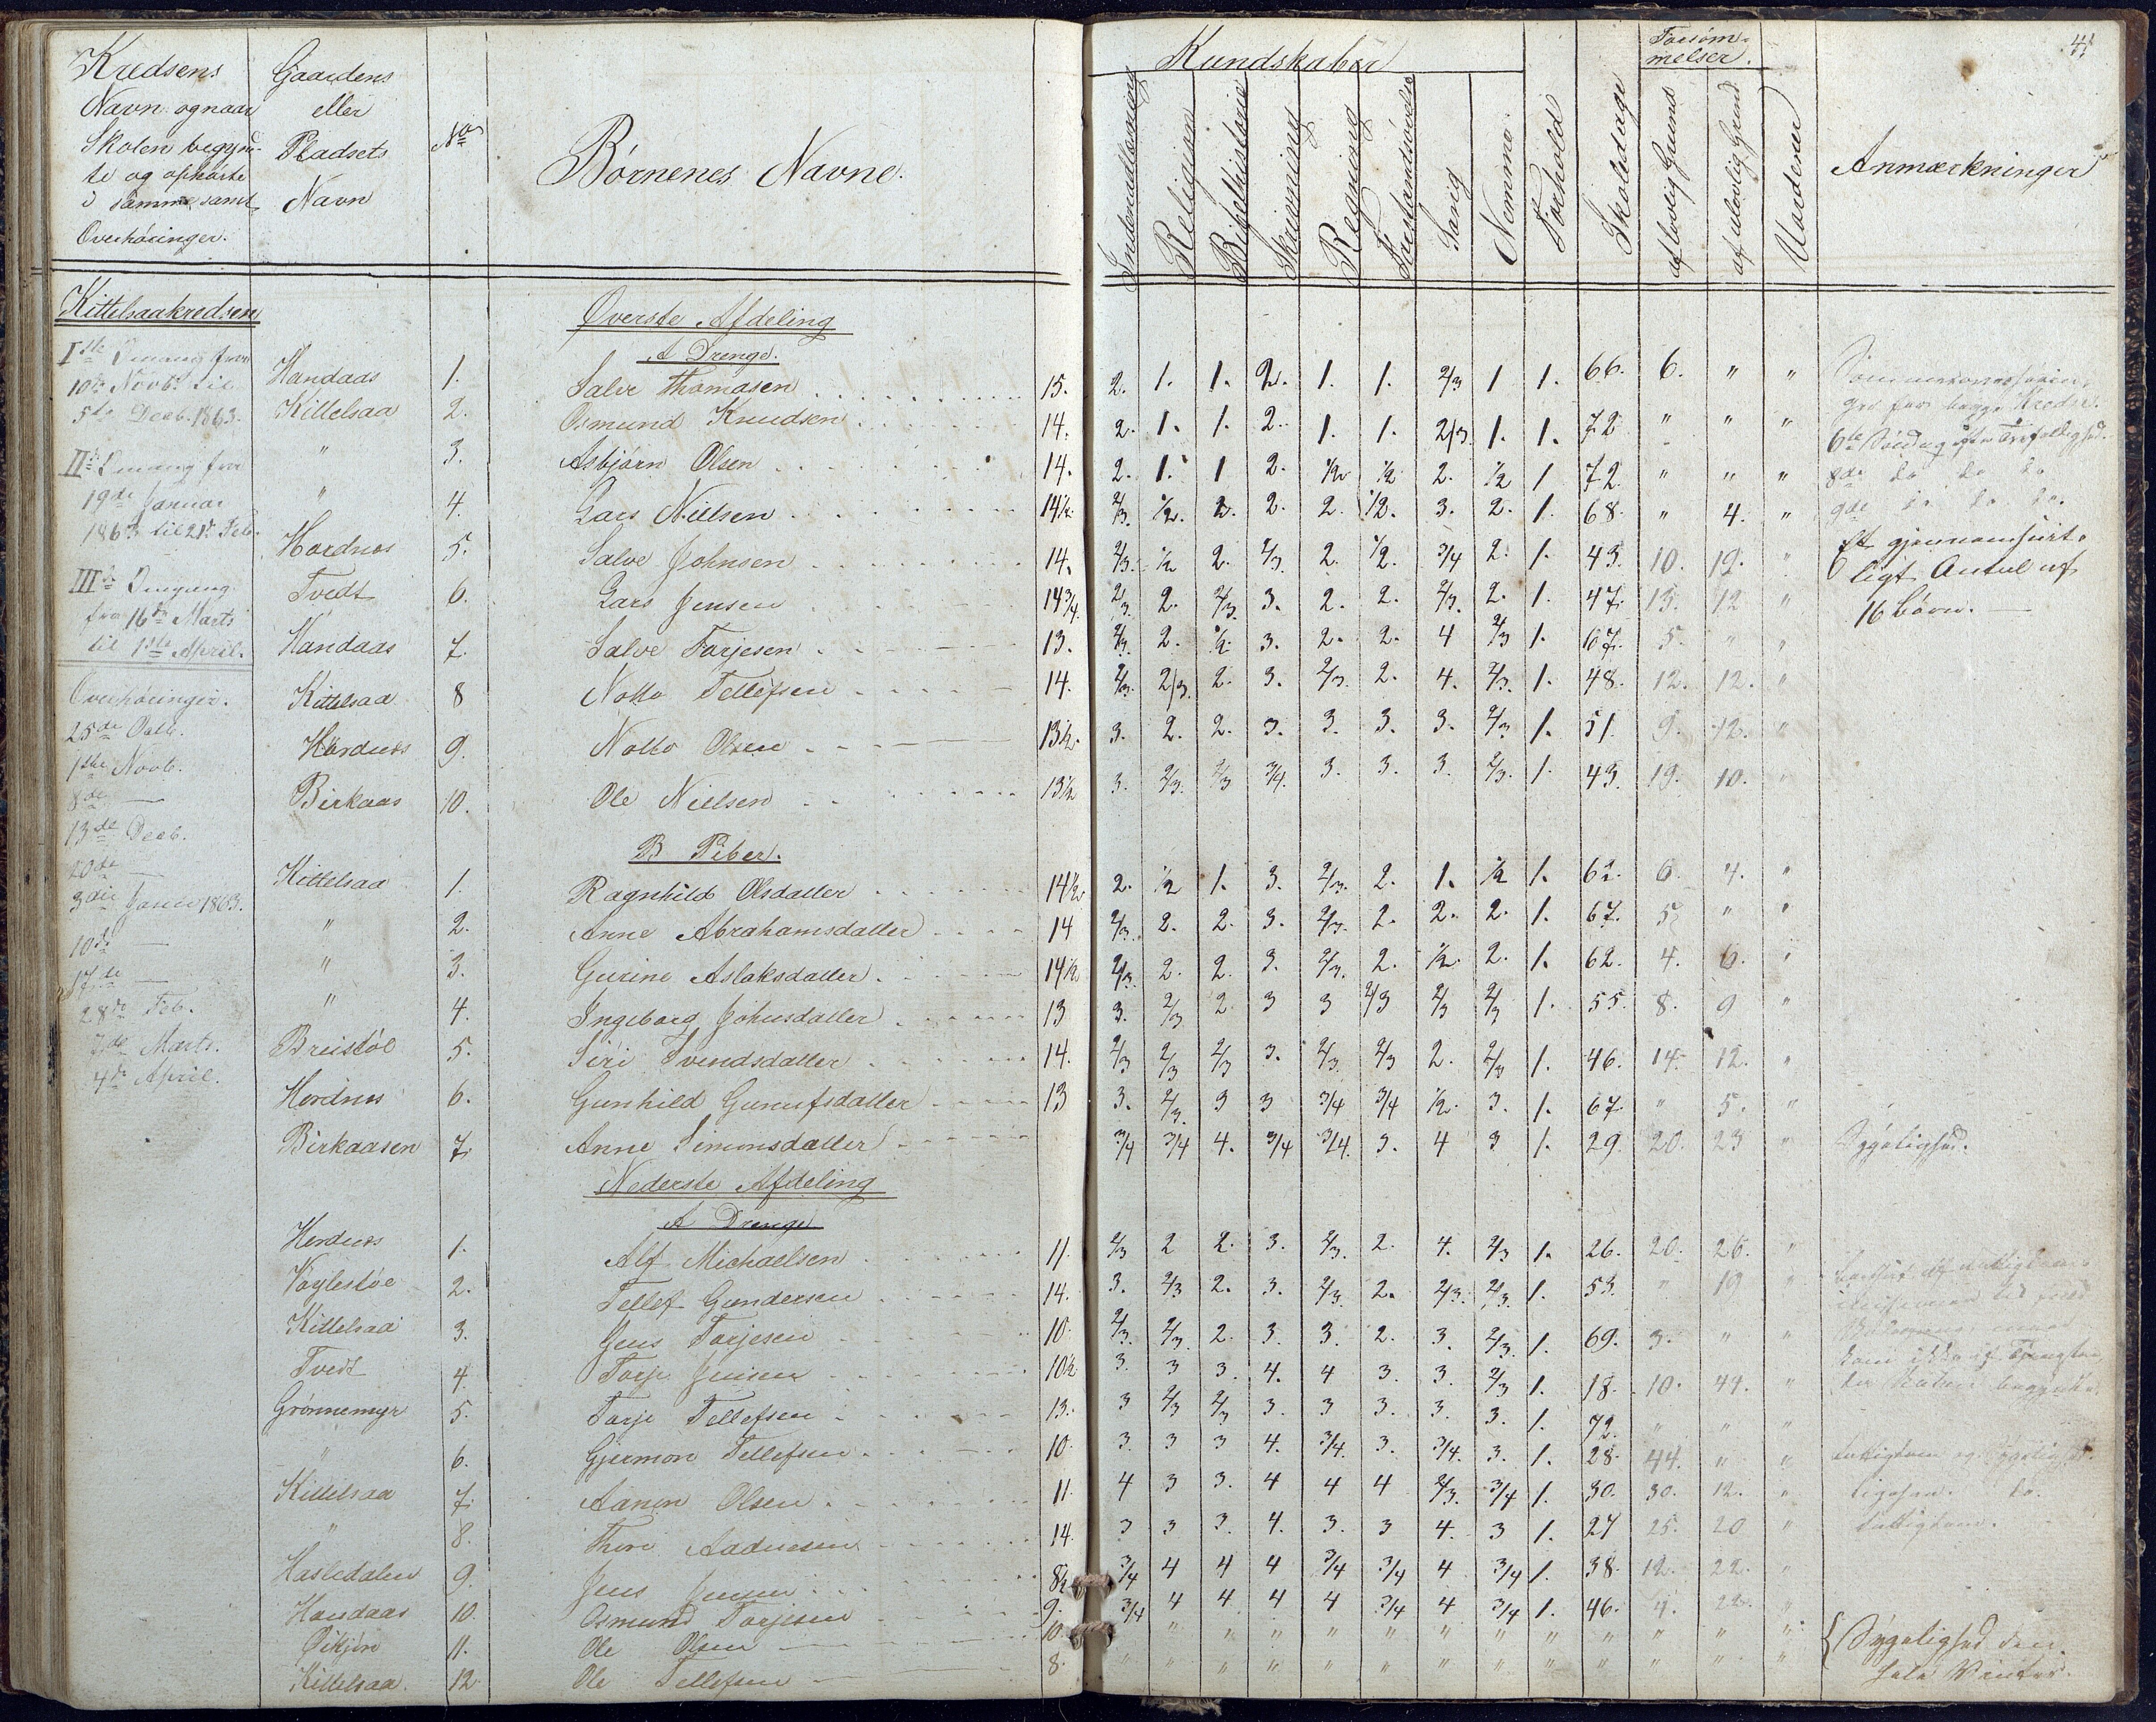 Kredsens
Navn og naar
Skolen begynd-
te og ophørte
i samme, samt
Overhøringer.
Gaardens
eller
Pladsets
Navn
No
Børnenes Navne.
Kundskaber
Indenadlæsning
Religion
Bibelhistorie
Skrivning
Regning
Forstandsøvelse
Sang
Nemme
Forhold
Skoledage
Forsøm-
melser.
af lovlig Grund
af ulovlig Grund
Vurderer
Anmærkninger
41
Kittelsaakredsen
Iste Omgang fra
10de Novbr. til
5te Decb. 1863.
IIden Omgang fra
19de Januar
1863 til 21de Feb.
IIIde Omgang
fra 16de Marts
til 1ste April.
Overhøringer.
25de Octb.
1ste Novb.
8de —
13de Decb.
20de —
3die Januar 1863.
10de —
17de —
28de Feb.
7de Marts.
4de April.
Øverste Afdeling
A Drenge.
Handaas 1. Salve Thomasen 15. 2. 1. 1. 2. 1. 1. 2/3 1 1. 66. 6. " "
Kittelsaa 2. Osmund Knudsen 14. 2. 1. 1. 2. 1. 1. 2/3. 1. 1. 72 " " "
" 3. Asbjørn Olsen 14. 2. 1. 1 2. 1/2 1/2 2. 1/2 1 72. " " "
" 4. Lars Nielsen 14 1/2 2/3. 1/2. 2. 2. 2. 1/2. 3. 2. 1. 68. " 4. "
Hordnes 5. Salve Johnsen 14. 2/3. 1/2 2. 2/3. 2. 1/2. 3/4 2. 1. 43. 10. 19. "
Tvedt 6. Lars Jensen 14 3/4 2/3. 2. 2/3. 3. 2. 2. 2/3. 2. 1. 47. 13. 12 "
Handaas 7. Salve Torjesen 13. 2/3. 2. 1/2. 3. 2. 2. 4 2/3 1. 67. 5. " "
Kittelsaa 8 Notto Tellefsen 14. 2/3. 2/3. 2. 3. 2/3. 2. 4. 2/3. 1. 48. 12. 12. "
Hordnes 9. Notto Olsen 13 1/2 3. 2. 2. 3. 3. 3. 3. 2/3 1. 51. 9. 12. "
Birkaas 10. Ole Nielsen 13 1/2 3. 2/3. 2/3 3/4. 3. 3. 3. 2/3. 1. 43. 19. 10. "
B Piber.
Kittelsaa 1. Ragnhild Olsdatter 14 1/2 2. 1/2 1. 3. 2/3. 2. 1. 1/2 1. 62. 6. 4. "
" 2. Anne Abrahamsdatter 14 2/3. 2. 2. 3. 2/3. 2. 2. 2. 1. 67. 5 " "
" 3. Gurine Aslaksdatter 14 1/2 2/3. 2. 2. 3. 2/3. 2. 1/2. 2. 1. 62. 4. 6. "
" 4. Ingeborg Johnsdatter 13 3. 2/3 2 3 3 2/3 2/3 2/3 1. 55. 8. 9 "
Breistøl 5. Siri Svendsdatter 14. 2/3 2/3 2/3 3. 2/3 2/3 2. 2/3 1. 46. 14. 12. "
Hordnes 6. Gunhild Gunufsdatter 13 3. 2/3. 3 3 3/4 3/4 1/2. 3. 1. 67. " 5. "
Birkaasen 7. Anne Simonsdatter 3/4 3/4 4. 3/4 3/4. 3. 4 3 1. 29. 20. 23 "
Nederste Afdeling
A Drenge
Hordnes 1. Alf Michaelsen 11. 2/3 2 2. 3. 2/3. 2. 4. 2/3 1. 26. 20. 26. "
Voglestøl 2. Tellef Gundersen 14. 3. 2/3 2. 3. 2/3. 2. 2/3. 2/3. 1. 53. " 19 "
Kittelsaa 3. Jens Torjesen 10. 2/3. 2/3. 2. 3. 3. 2. 3. 2/3. 1. 69. 3. " "
Tvedt 4. Torje Jensen 10 1/2 3. 3 3. 4. 4 3. 3. 2/3 1. 18. 10. 44. "
Grønnemyr 5. Torje Tellefsen 13. 3 2/3 2/3 3. 3 3. 3. 3. 1. 72. " " "
" 6. Gjermon Tellefsen 10. 3. 3 3 4. 3/4. 3. 3/4. 3. 1. 28. 44. " "
Kittelsaa 7. Aanon Olsen 11. 4 3 3. 4 4 4 2/3. 3/4 1. 30. 30. 12. "
" 8. Thore Aadnesen 14. 3 3 3. 4. 3. 3 4. 3 1. 27 25. 20 "
Hasledalen 9. Jens Jensen 8 1/2 3/4 4 4 4 3/4 3/4 4 3/4 1. 38. 12. 22. "
Handaas 10. Osmund Torjesen 9. 3/4 4 4. 4 4 3/4 4 3/4 1. 46. 4. 22. "
11. Ole Olsen 10. " " " " " " " " " " " " "
Kittelsaa 12 Ole Tellefsen 8. " " " " " " " " " " " " "
6te Søndag efter Trefoldighed.
8de do do do
9de do do do.
Et gjennemsnit-
ligt Antal af
16 Børn. —
Sygelighed.
Fattigdom og Sygelighed.
Ligesaa. do.
Fattigdom.
{ Sygelighed den
hele Vinter.